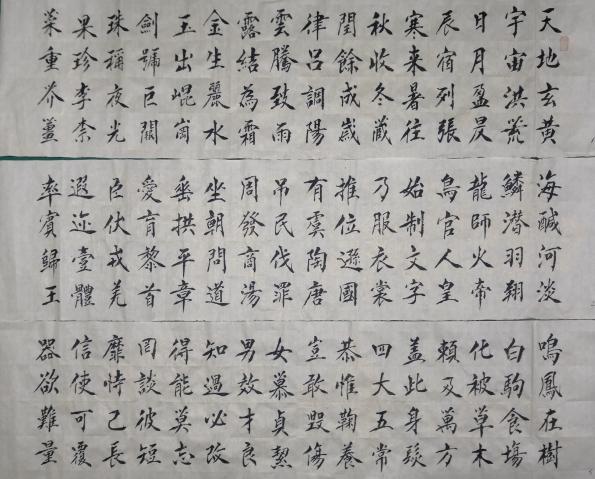 天地玄黄
宇宙洪荒
日月盈昃
辰宿列張
寒来暑往
秋收冬藏
閏餘成歲
律吕調陽
雲騰致雨
露結為霜
金生麗水
玉出崐崗
劍號巨闕
珠稱夜光
果珍李柰
菜重芥薑
海鹹河淡
鱗潜羽翔
龍師火帝
鳥官人皇
始制文字
乃服衣裳
推位遜國
有虞陶唐
吊民伐罪
周發商湯
坐朝問道
垂拱平章
愛育黎首
臣伏戎羌
遐迩壹體
率賓歸王
鳴鳳在樹
白駒食場
化被草木
賴及萬方
蓋此身髮
四大五常
恭惟鞠養
豈敢毀傷
女慕貞絜
男效才良
知過必改
得能莫忘
罔談彼短
靡恃己長
信使可覆
器欲難量